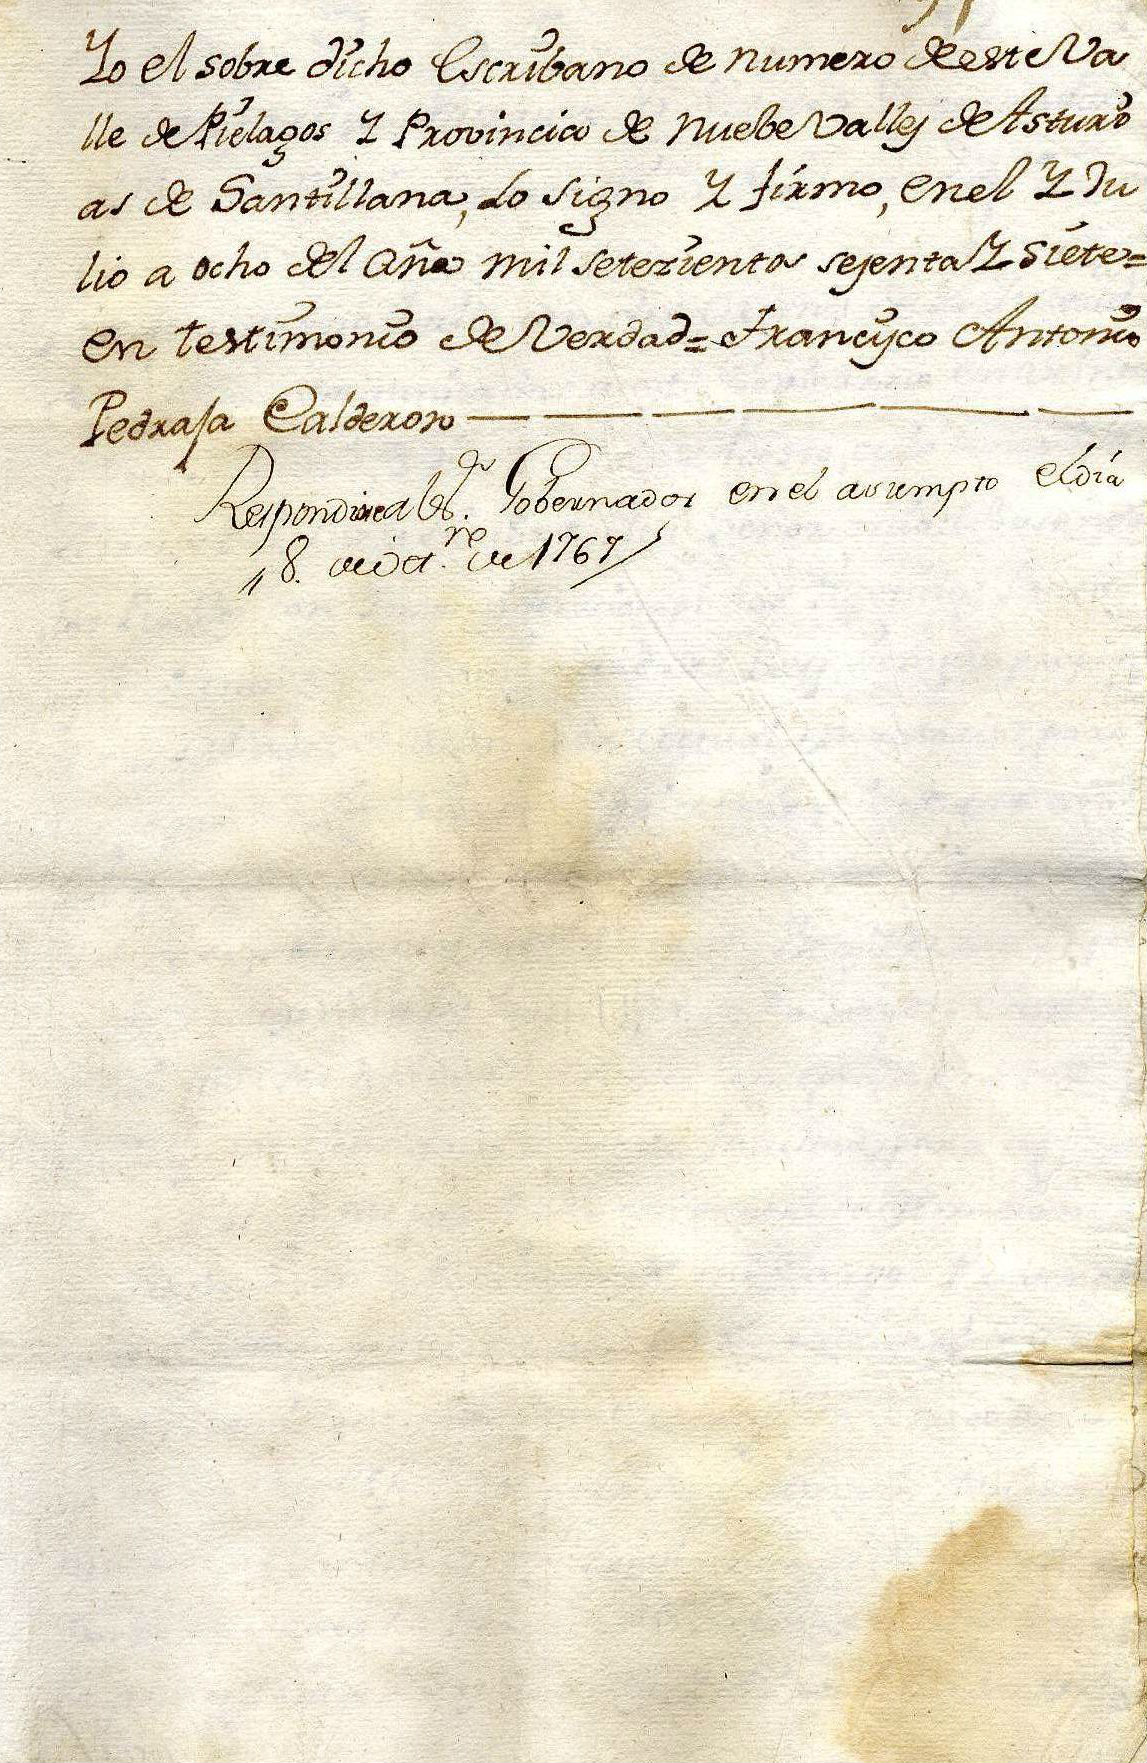 Yo el sobre dicho Escribano de numero de este Va
lle de Pielagos Y Provincia de Nuebe Valles de Asturi
as de Santillana, Lo signo Y firmo, en el Y Ju
lio a ocho del año mil setezientos sesenta Y Siete=
en testimonio de Verdad= Francisco Antonio
Pedrasa Calderon
Respondiose al Gobernador en el asumpto el dia
18. de Oct.re de 1767